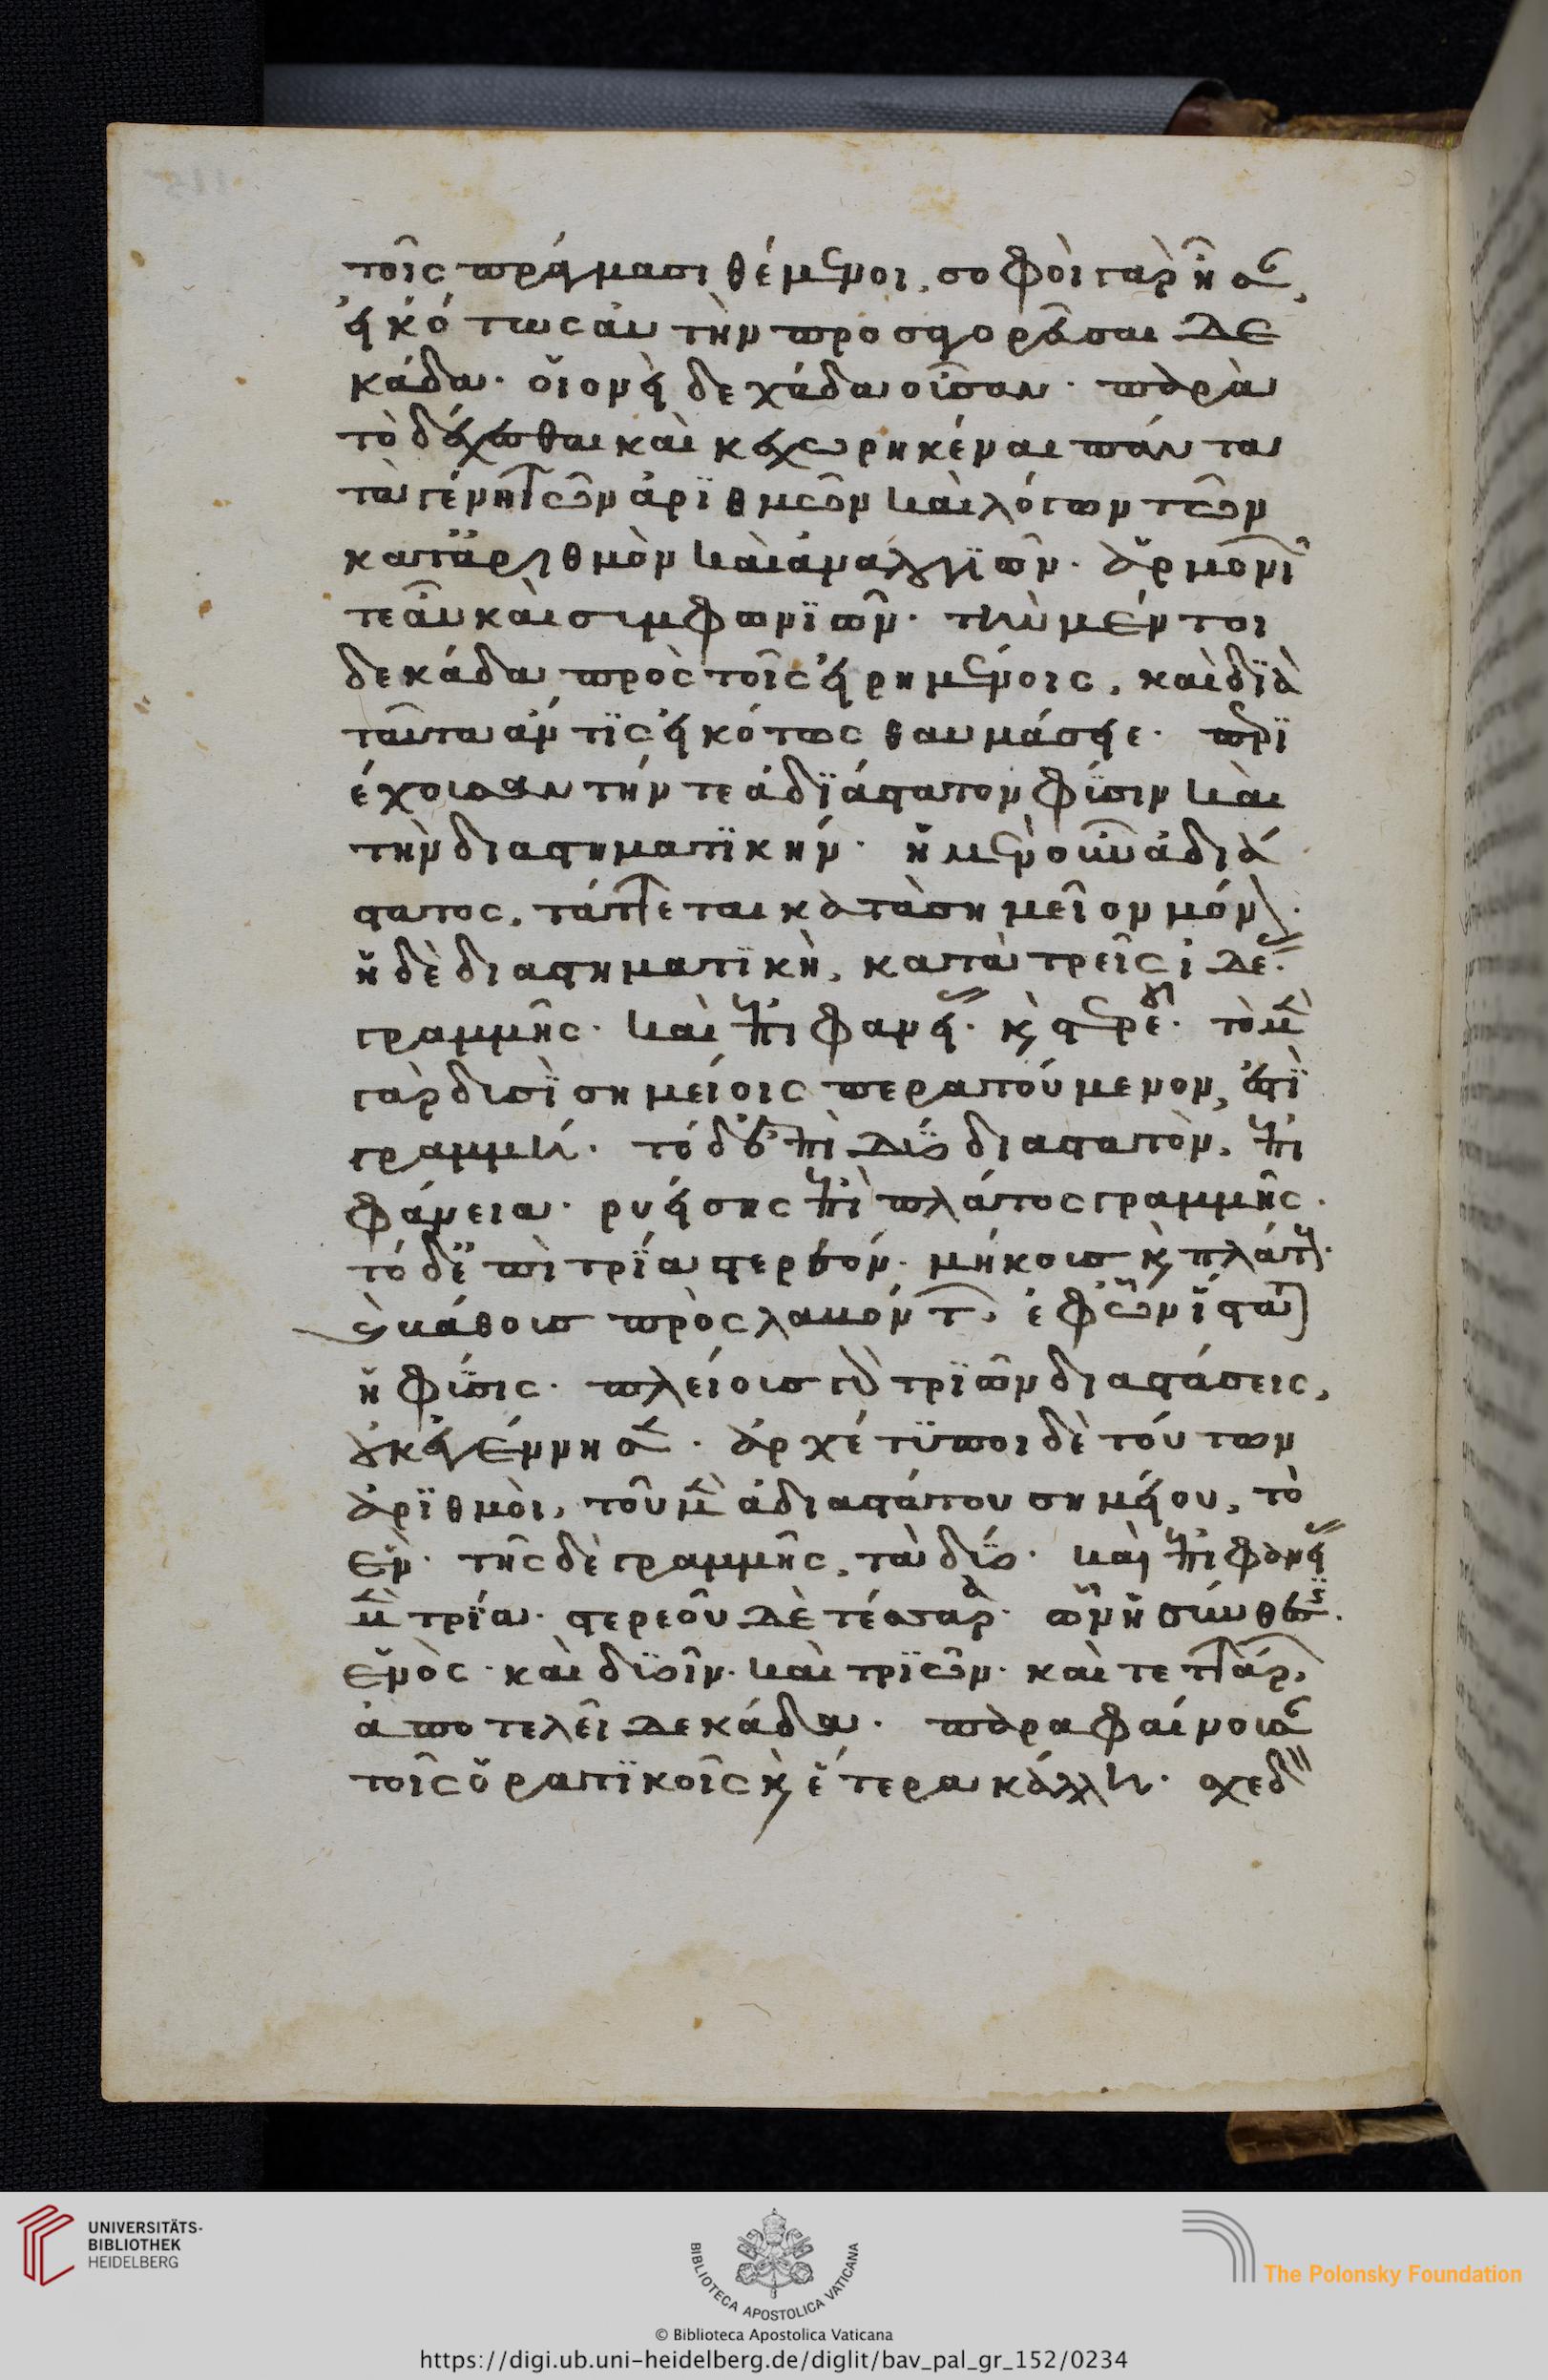 τοῖς πράγμασι θέμενοι, σοφοὶ γὰρ ἦσαν,
εἰκότως αὐτὴν προσηγορεῦσαι δε
κάδα· οἱονεὶ δεχάδα οὖσαν· παρὰ
τὸ δέχεσθαι καὶ κεχωρηκέναι πάντα
τὰ γένη τῶν ἀρϊθμῶν καὶ λόγων τῶν
κατ' ἀριθμὸν καὶ ἀναλογϊῶν· ἁρμονι
τε αὖ καὶ συμφωνϊῶν· τὴν μέν τοι
δεκάδα πρὸς τοῖς εἰρημένοις, καὶ δϊὰ
ταῦτα ἄν τϊς εἰκότως θαυμάσειε· περϊ
έχουσαν τήν τε ἀδϊάστατον φύσιν καὶ
τὴν διαστηματϊκήν· ἡ μὲν οὖν ἀδιά
στατος, τάττεται κατὰ σημεῖον μόνον·
ἡ δὲ διαστηματϊκὴ, κατὰ τρεῖς ἰδέας·
γραμμῆς· καὶ ἐπιφανείας· κ στερεοῦ· τὸ μὲν
γὰρ δυσὶ σημείοις περατούμενον, ἐστὶ
γραμμή· τὸ δ' ἐπὶ δύο διαστατὸν, ἐπι
φάνεια· ρυείσης ἐπὶ πλάτος γραμμῆς·
τὸ δ' ἐπὶ τρία στερεόν· μήκους κ πλάτους·
καὶ βάθους προσλαβόντων, ἐφ' ὧν ἵσταται
ἡ φύσις· πλείους γὰρ τρϊῶν διαστάσεις,
οὐκ ἐγέννησεν· ἀρχέτϋποι δὲ τούτων
ἀρϊθμοὶ, τοῦ μὲν ἀδιαστάτου σημείου, τὸ
ἕν· τῆς δὲ γραμμῆς, τὰ δύο· καὶ ἐπιφανείας
μὲν τρία· στερεοῦ δὲ τέσσαρα· ὧν ἡ σύνθεσις·
ἑνὸς· καὶ δυοῖν· καὶ τρϊῶν· καὶ τεττάρων,
ἀποτελεῖ δεκάδα· παραφαίνουσαν
τοῖς ὁρατϊκοῖς κ ἕτερα κάλλη· σχεδὸν
UNIVERSITÄTS-
BIBLIOTHEK
HEIDELBERG
BIBLIOTECA APOSTOLICA VATICANA
The Polonsky Foundation
© Biblioteca Apostolica Vaticana
https://digi.ub.uni-heidelberg.de/diglit/bav_pal_gr_152/0234